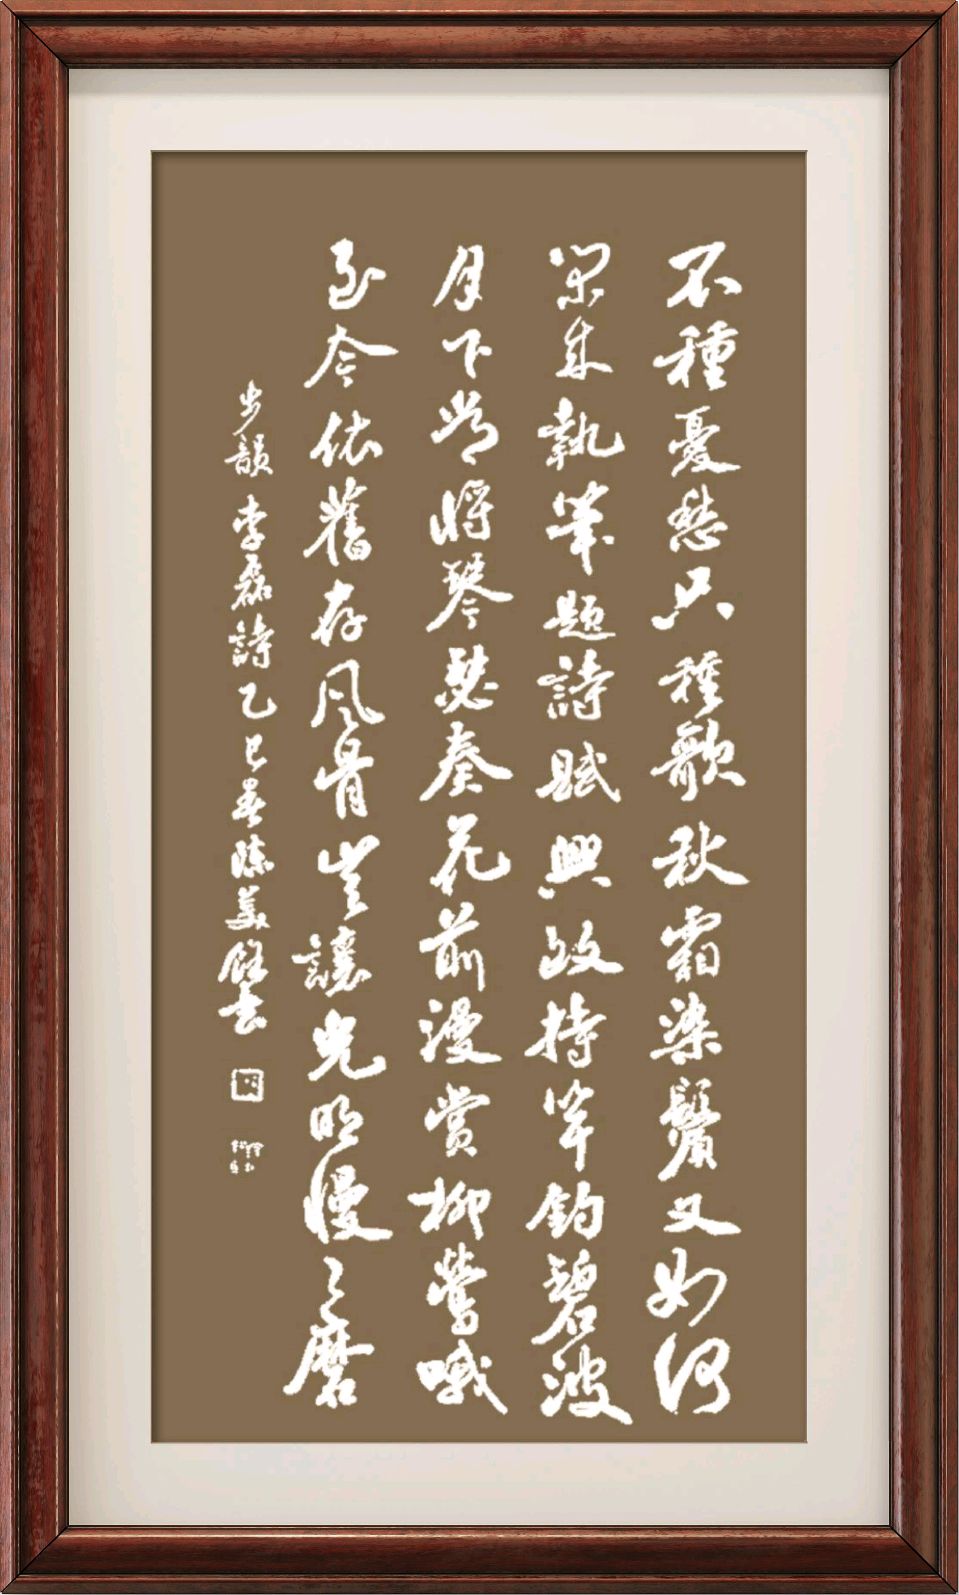 不種憂愁只種歌秋霜染鬢又如何
閑來執筆題詩賦興致持竿釣碧波
月下常將琴瑟奏花前漫賞柳鶯哦
至今依舊存風骨豈讓光阴慢々磨
步韻李磊詩乙巳陳美書